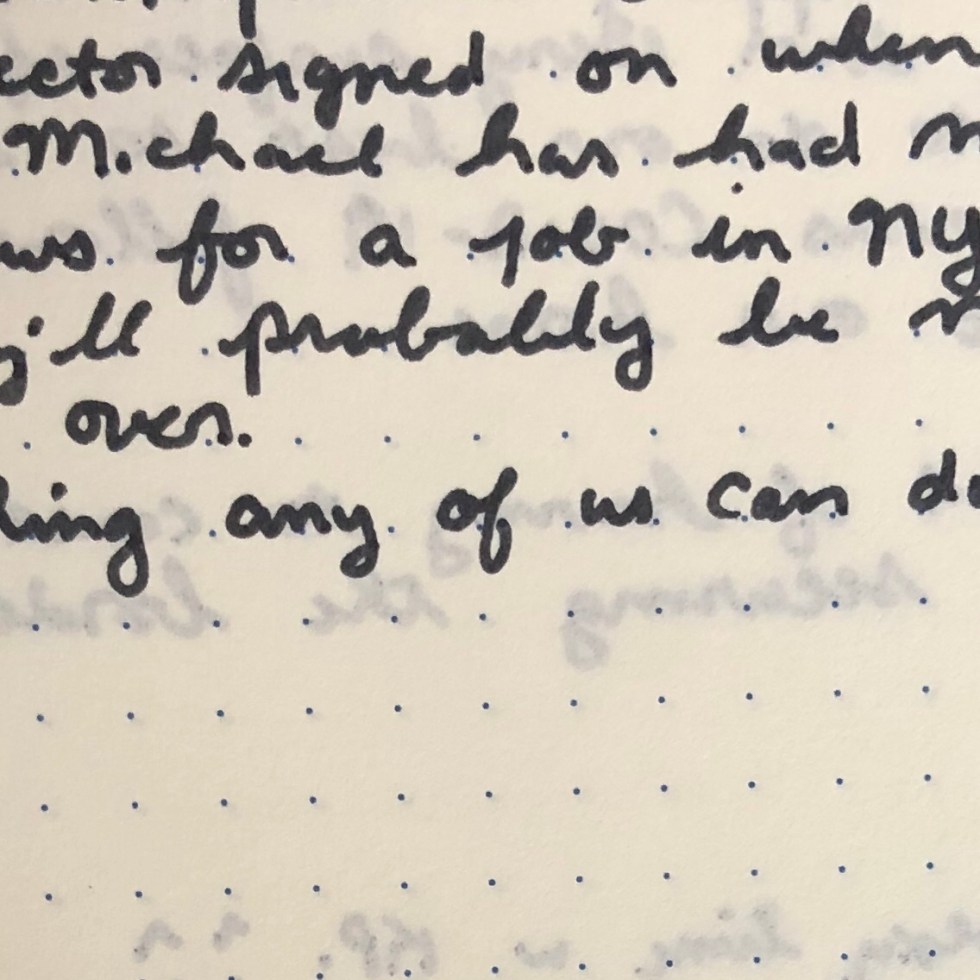 ector signed on when
Michael has had
ws for a job in NY
y'll probably be
over.
hing any of us can do